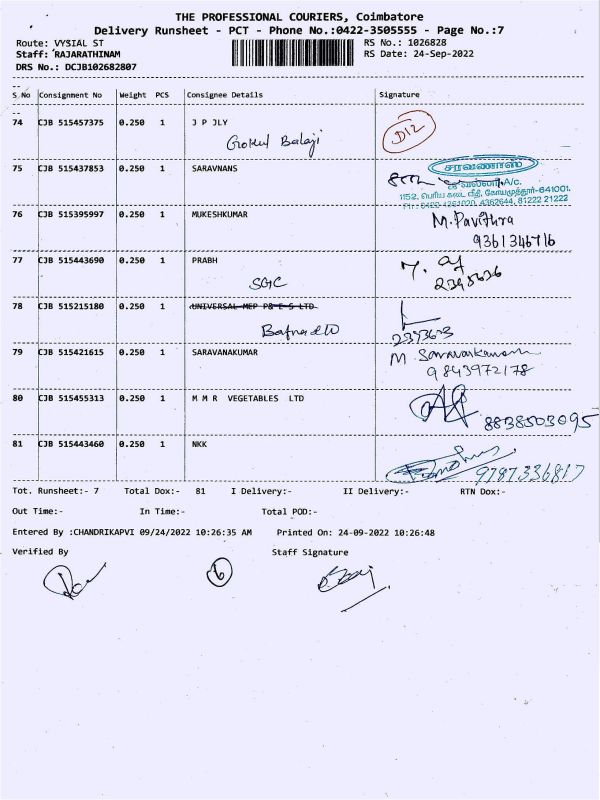 THE PROFESSIONAL COURIERS, Coimbatore
Delivery Runsheet - PCT - Phone No.:0422-3505555 - Page No.:7
Route: VYSIAL ST RS No.: 1026828
Staff: RAJARATHINAM RS Date: 24-Sep-2022
DRS No.: DCJB102682807
S_No Consignment No Weight PCS Consignee Details Signature
74 CJB 515457375 0.250 1 J P JLY D12
Gokul Balaji
75 CJB 515437853 0.250 1 SARAVNANS சரவணாஸ்
A/c.
1152, பெரிய கடை வீதி, கோயமுத்தூர்-641001.
4362644, 81222 21222
76 CJB 515395997 0.250 1 MUKESHKUMAR M. Pavithra
9361346716
77 CJB 515443690 0.250 1 PRABH
SGC 2395636
78 CJB 515215180 0.250 1 UNIVERSAL MEP P& E S LTD
79 CJB 515421615 0.250 1 SARAVANAKUMAR M Saravanakumar
9843972178
80 CJB 515455313 0.250 1 M M R VEGETABLES LTD 8838503095
81 CJB 515443460 0.250 1 NKK
9787336817
Tot. Runsheet:- 7 Total Dox:- 81 I Delivery:- II Delivery:- RTN Dox:-
Out Time:- In Time:- Total POD:-
Entered By :CHANDRIKAPVI 09/24/2022 10:26:35 AM Printed On: 24-09-2022 10:26:48
Verified By Staff Signature
6